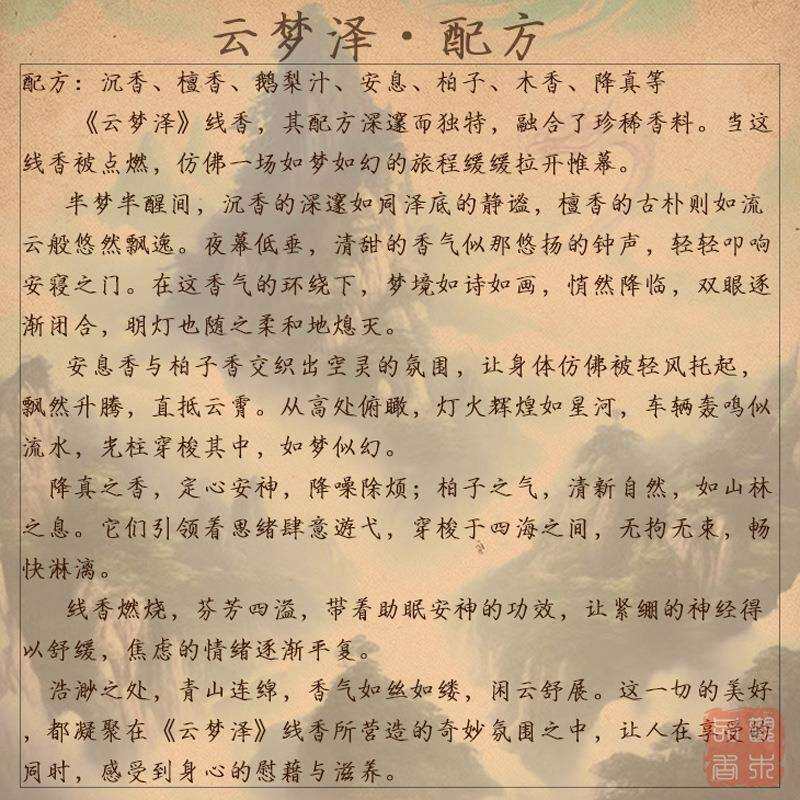 云梦泽·配方
配方：沉香、檀香、鹅梨汁、安息、柏子、木香、降真等
《云梦泽》线香，其配方深邃而独特，融合了珍稀香料。当这
线香被点燃，仿佛一场如梦如幻的旅程缓缓拉开帷幕。
半梦半醒间，沉香的深邃如同泽底的静谧，檀香的古朴则如流
云般悠然飘逸。夜幕低垂，清甜的香气似那悠扬的钟声，轻轻叩响
安寝之门。在这香气的环绕下，梦境如诗如画，悄然降临，双眼逐
渐闭合，明灯也随之柔和地熄灭。
安息香与柏子香交织出空灵的氛围，让身体仿佛被轻风托起，
飘然升腾，直抵云霄。从高处俯瞰，灯火辉煌如星河，车辆轰鸣似
流水，光柱穿梭其中，如梦似幻。
降真之香，定心安神，降噪除烦；柏子之气，清新自然，如山林
之息。它们引领着思绪肆意遊弋，穿梭于四海之间，无拘无束，畅
快淋漓。
线香燃烧，芬芳四溢，带着助眠安神的功效，让紧绷的神经得
以舒缓，焦虑的情绪逐渐平复。
浩渺之处，青山连绵，香气如丝如缕，闲云舒展。这一切的美好
，都凝聚在《云梦泽》线香所营造的奇妙氛围之中，让人在享受的
同时，感受到身心的慰藉与滋养。